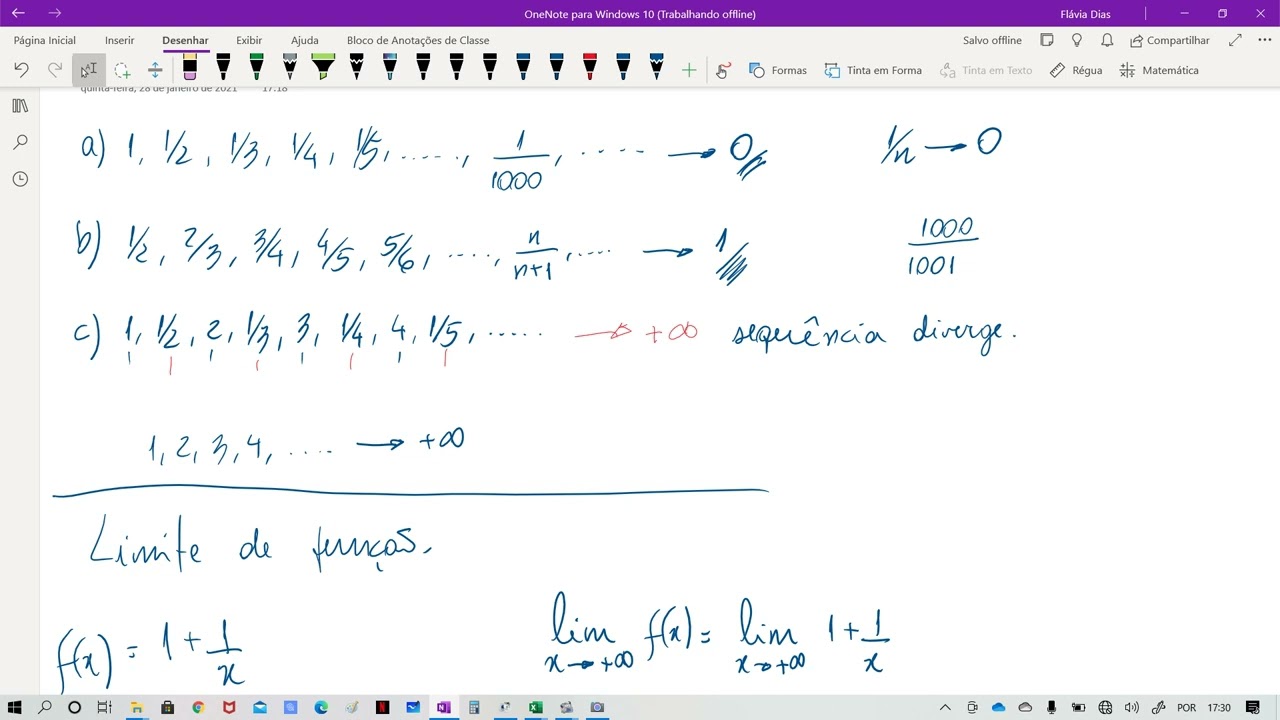 OneNote para Windows 10 (Trabalhando offline)
Flávia Dias
Página Inicial Inserir Desenhar Exibir Ajuda Bloco de Anotações de Classe
Salvo offline Compartilhar
Formas Tinta em Forma Tinta em Texto Régua Matemática
quinta-feira, 28 de janeiro de 2021 17:18
a) 1, 1/2, 1/3, 1/4, 1/5, ....., 1/1000, ..... → 0 1/n → 0
b) 1/2, 2/3, 3/4, 4/5, 5/6, ....., n/n+1, ..... → 1 1000/1001
c) 1, 1/2, 2, 1/3, 3, 1/4, 4, 1/5, ...... → +∞ sequência diverge.
1, 2, 3, 4, ..... → +∞
Limite de função.
f(x) = 1 + 1/x lim x→+∞ f(x) = lim x→+∞ 1 + 1/x
POR 17:30